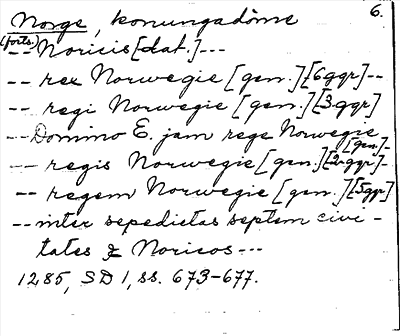 Norge, konungadöme 6.
(forts.)
-- Noricis [dat.] ---
-- rex Norwegie [gen.] [6 ggr] --
-- regi Norwegie [gen.] [3 ggr]
-- Domino E. jam rege Norwegie [gen.] -
-- regis Norwegie [gen.] [2 ggr] --
-- regem Norwegie [gen.] [5 ggr]
-- inter sepedictas septem civi-
tates & Noricos ---
1285, SD 1, ss. 673-677.